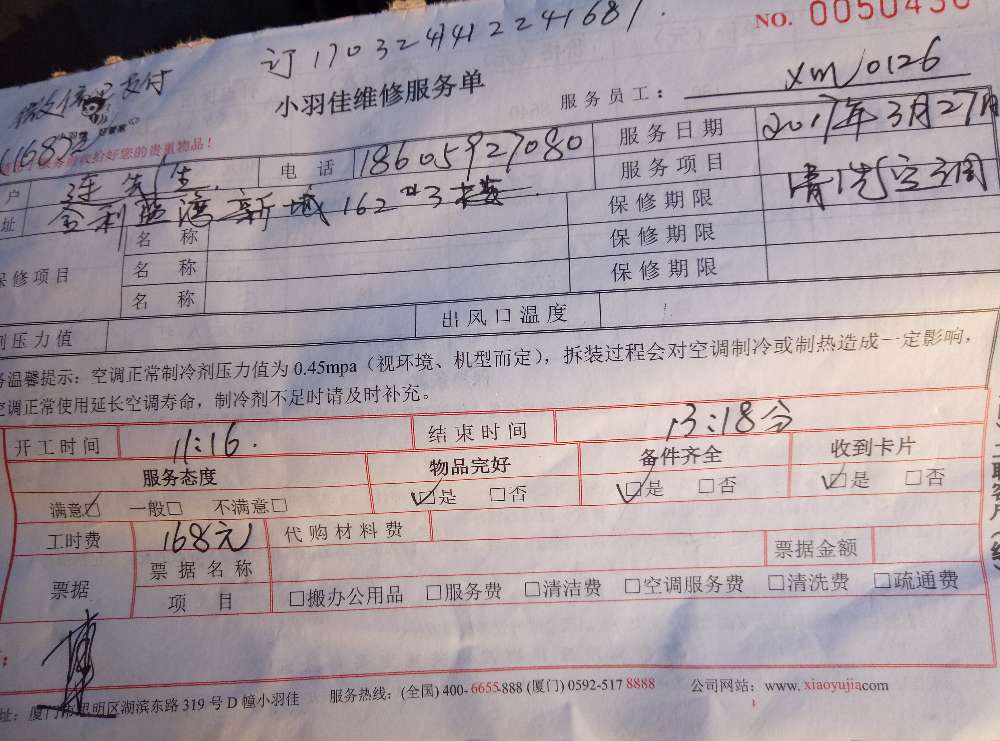 NO. 0050430
订170324412241681.
微信支付
小羽佳维修服务单
服务员工: xm0126
116832
收拾好您的贵重物品!
户 连先生 电 话 18605927080 服务日期 2017年3月27日
址 金利蓝湾新城162#3楼 服务项目 清洗空调
保修项目 名 称 保修期限
名 称 保修期限
名 称 保修期限
剂压力值 出风口温度
务温馨提示: 空调正常制冷剂压力值为 0.45mpa (视环境、机型而定), 拆装过程会对空调制冷或制热造成一定影响,
空调正常使用延长空调寿命, 制冷剂不足时请及时补充。
开工时间 11:16. 结束时间 13:18分
服务态度 物品完好 备件齐全 收到卡片
满意☑ 一般□ 不满意□ ☑是 □否 ☑是 □否 ☑是 □否
工时费 168元 代购材料费
票据 票据名称 票据金额
项 目 □搬办公用品 □服务费 □清洁费 □空调服务费 □清洗费 □疏通费
址: 厦门市思明区湖滨东路 319 号 D 幢小羽佳 服务热线: (全国) 400-6655-888 (厦门) 0592-517 8888 公司网站: www. xiaoyujiacom